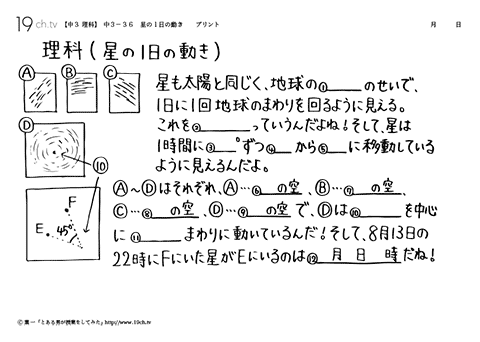 19ch.tv 【中3 理科】 中3-36 星の1日の動き プリント 月 日
理科(星の1日の動き)
Ⓐ Ⓑ Ⓒ
Ⓓ
⑩
F
E
45°
星も太陽と同じく、地球の①____のせいで、
1日に1回地球のまわりを回るように見える。
これを②____っていうんだよね!そして、星は
1時間に③__°ずつ④__から⑤__に移動している
ように見えるんだよ。
Ⓐ~Ⓓはそれぞれ、Ⓐ…⑥ の空、Ⓑ…⑦ の空、
Ⓒ…⑧ の空、Ⓓ…⑨ の空で、Ⓓは⑩____を中心
に⑪____まわりに動いているんだ!そして、8月13日の
22時にFにいた星がEにいるのは⑫ 月 日 時だね!
Ⓒ 葉一「とある男が授業をしてみた」http://www.19ch.tv